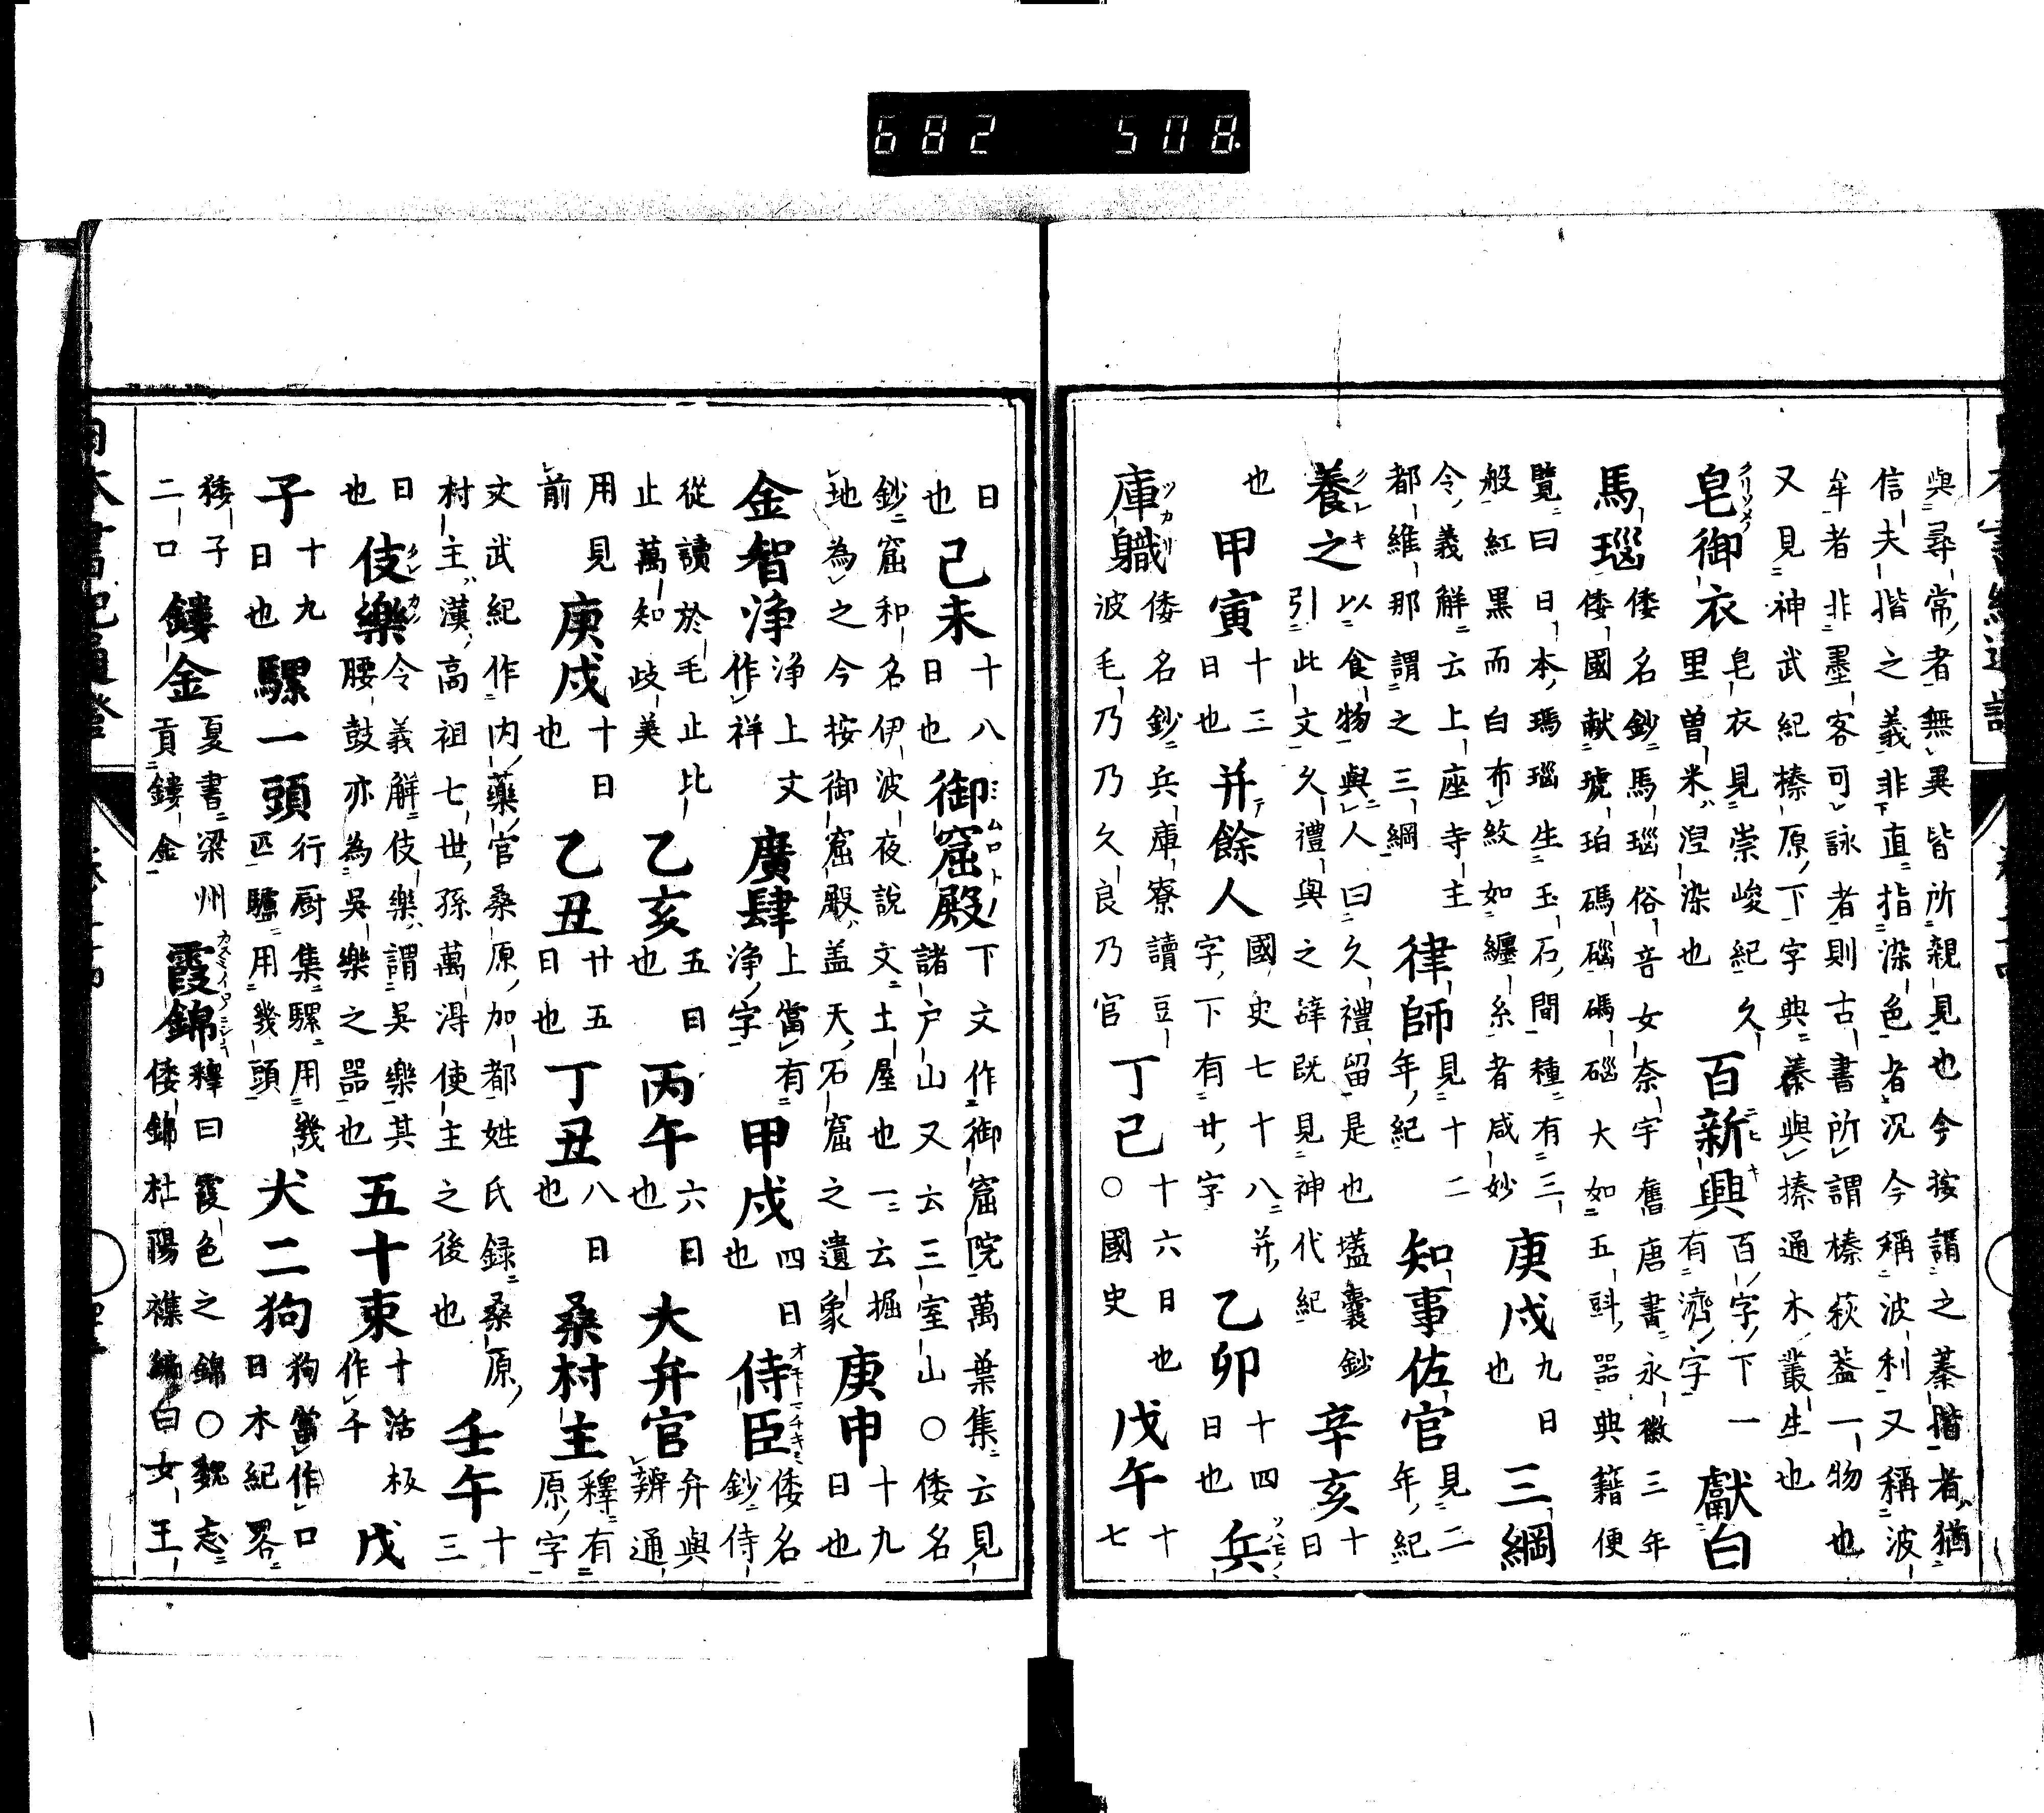 682 508
與尋常者無異皆所親見也今按謂之蓁揩者猶
信夫揩之義非直指染色者況今稱波利又稱波
牟者非墨客可詠者則古書所謂榛萩蓋一物也
又見神武紀榛原下字典蓁與榛通木叢生也
皂御衣 皂衣見崇峻紀久
里曽米涅染也
百新興 百字下一
有濟字
獻白
馬瑙 倭名鈔馬瑙俗音女奈宇舊唐書永徽三年
倭國献琥珀碼碯碼碯大如五斗器典籍便
覽曰日本瑪瑙生玉石間種有三
般紅黒而白布紋如纏糸者咸妙
庚戌 九日
也
三綱
令義解云上座寺主
都維那謂之三綱
律師 見十二
年紀
知事佐官 見二
年紀
養之 以食物與人曰久禮留是也壒囊鈔
引此文久禮與之辞既見神代紀
辛亥 十
日
也
甲寅 十三
日也
并餘人 國史七十八并
字下有廿字
乙卯 十四
日也
兵
庫職 倭名鈔兵庫寮讀豆
波毛乃乃久良乃官
丁巳 十六日也
○國史
戊午 十
七
日
也
己未 十八
日也
御窟殿 下文作御窟院萬葉集云見
諸戸山又云三室山○倭名
鈔窟和名伊波夜說文土屋也一云掘
地為之今按御窟殿盖天石窟之遺象
庚申 十九
日也
金智淨 淨上文
作祥
廣肆 上當有
淨字
甲戌 四日
也
侍臣 倭名
鈔侍
從讀於毛止比
止萬知岐美
乙亥 五日
也
丙午 六日
也
大弁官 弁與
辨通
用見
前
庚戌 十日
也
乙丑 廿五
日也
丁丑 八日
也
桑村主 釋有
原字
文武紀作内藥官桑原加都姓氏録桑原
村主漢高祖七世孫萬淂使主之後也
壬午 十
三
日
也
伎樂 令義解伎樂謂吳樂其
腰鼓亦為吳樂之器也
五十束 十活板
作千
戊
子 十九
日也
騾一頭 行厨集騾用幾
匹驢用幾頭
犬二狗 狗當作口
日本紀畧
獀子
二口
鏤金 夏書梁州
貢鏤金
霞錦 釋曰霞色之錦○魏志
倭錦杜陽襍編白女王